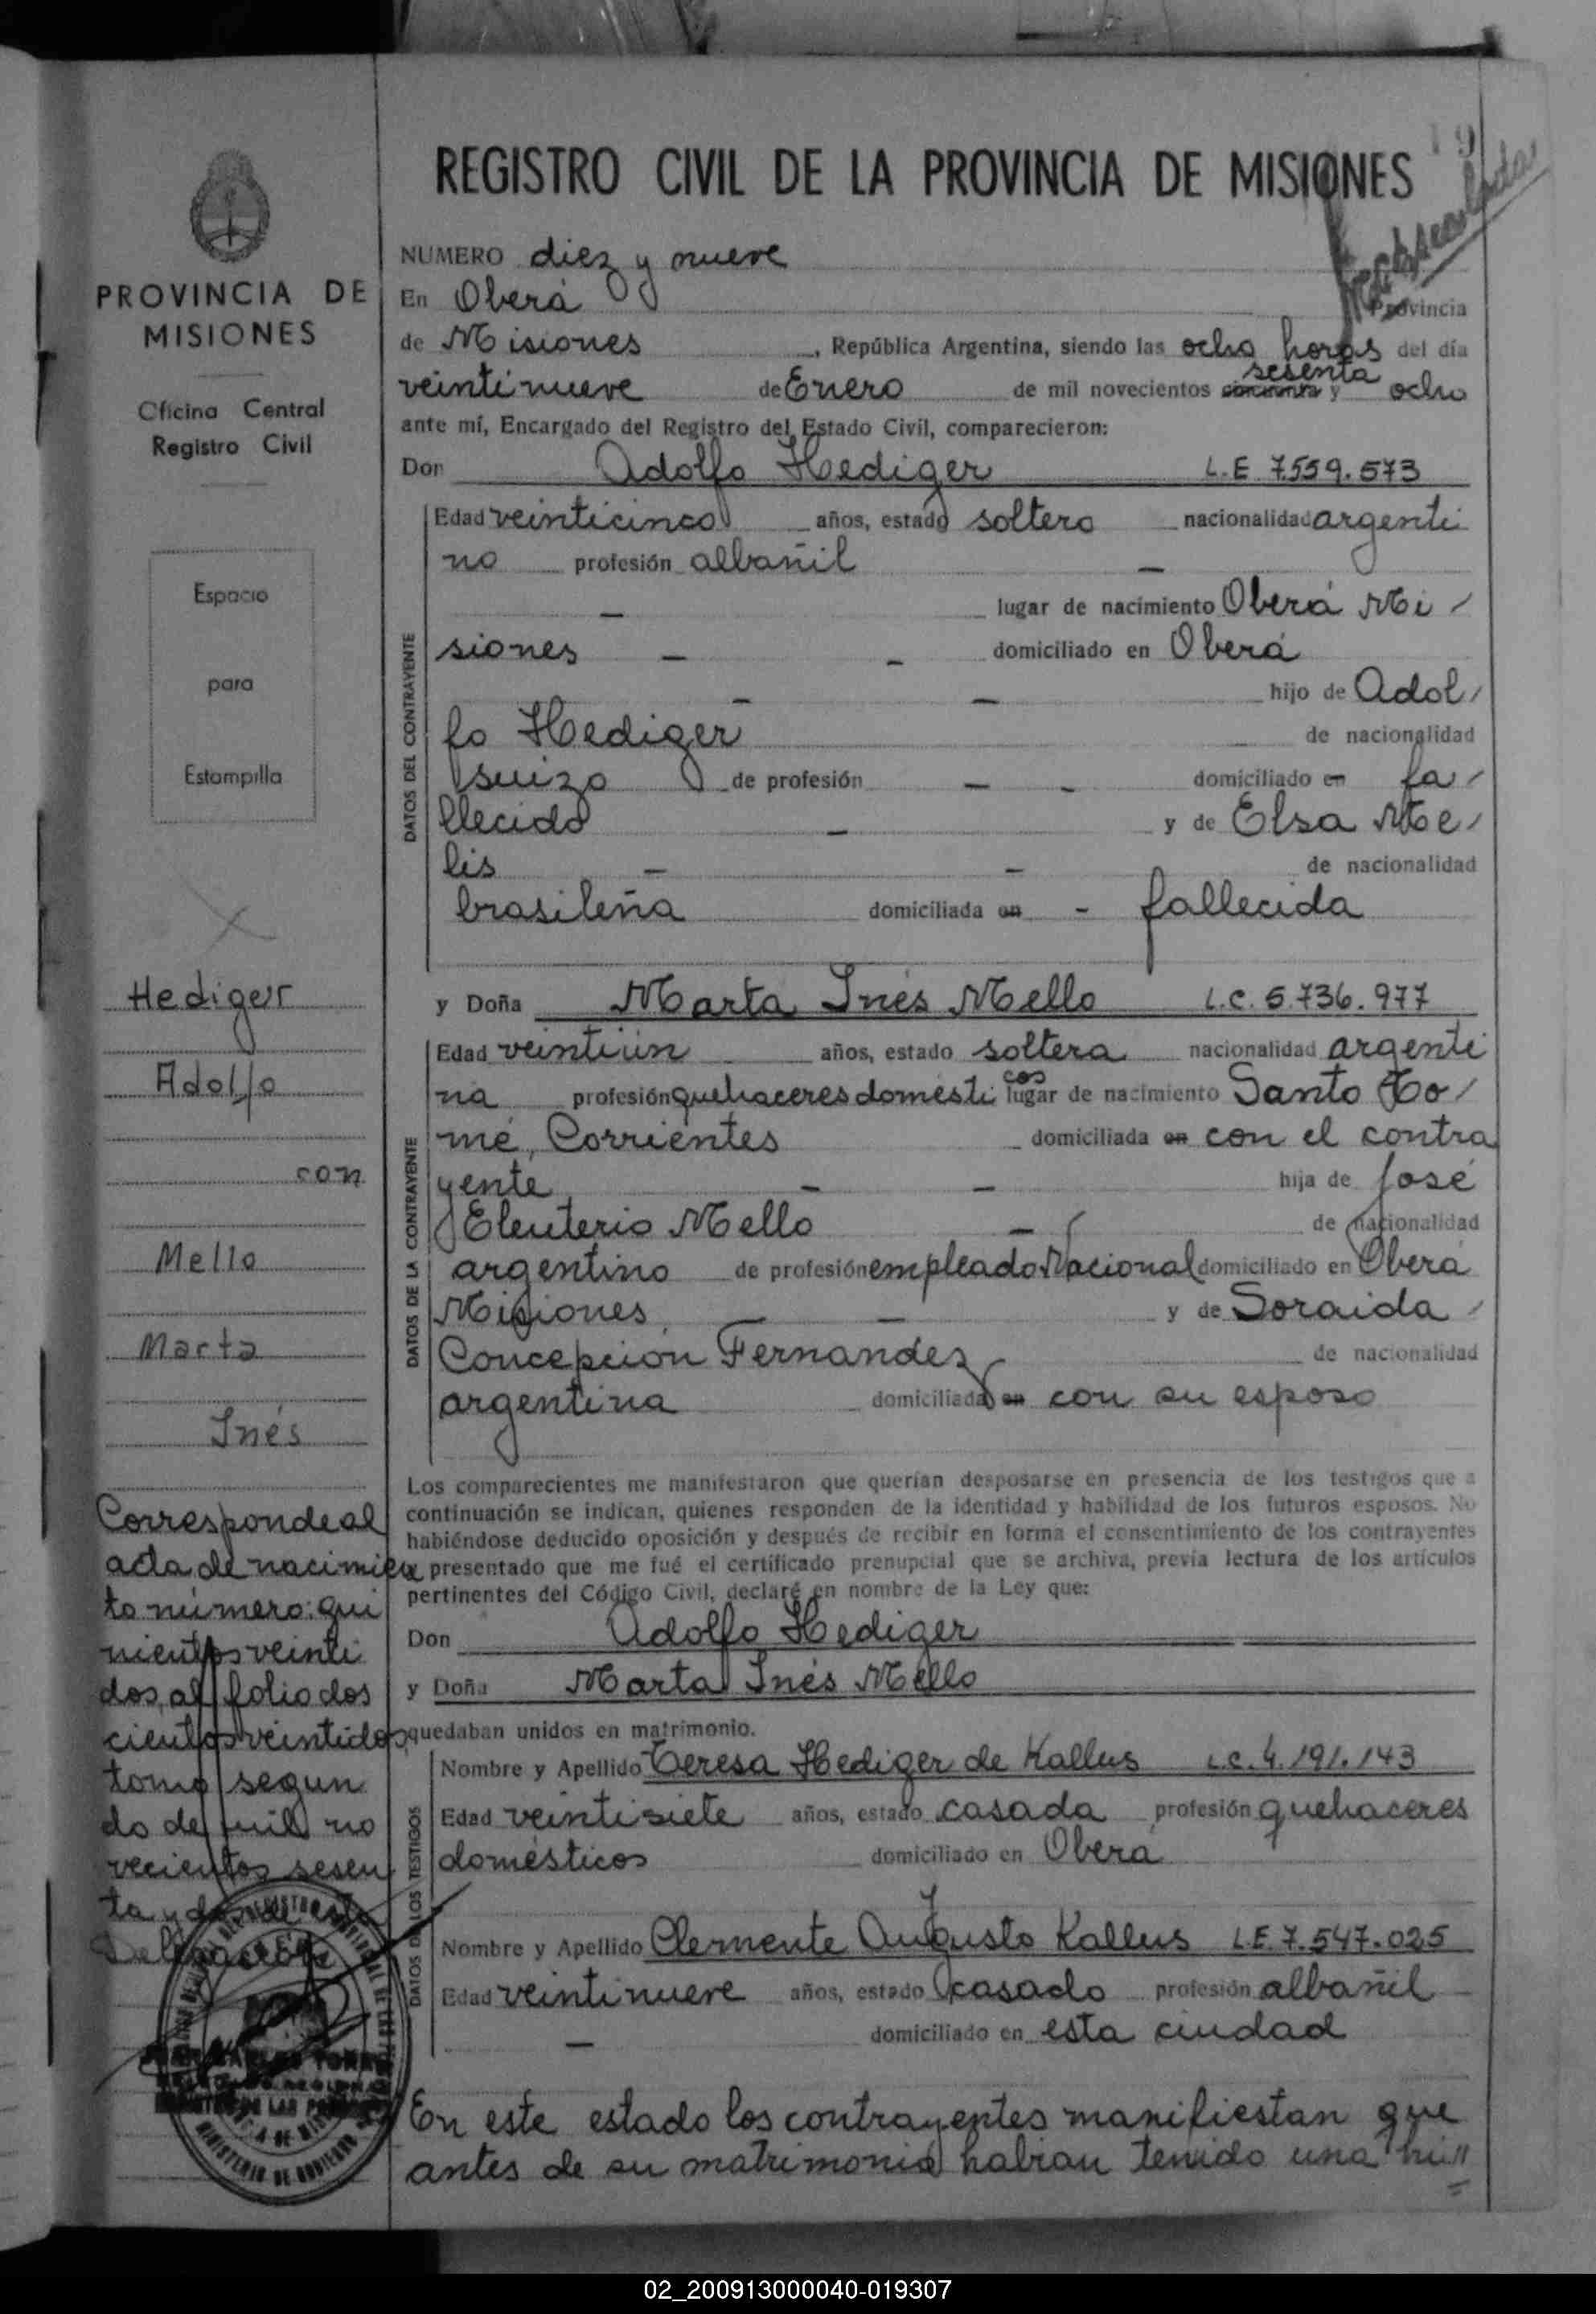 19
REGISTRO CIVIL DE LA PROVINCIA DE MISIONES
PROVINCIA DE
MISIONES
Oficina Central
Registro Civil
Espacio
para
Estampilla
Hediger
Adolfo
con
Mello
Marta
Inés
Corresponde al
acta de nacimien
to número: qui
nientos veinti
dos, al folio dos
cientos veintidos,
tomo segun
do de mil no
vecientos sesen
ta y dos de esta
Delegación
NUMERO diez y nueve
En Oberá Provincia
de Misiones, República Argentina, siendo las ocho horas del día
veintinueve de Enero de mil novecientos cincuenta sesenta y ocho
ante mí, Encargado del Registro del Estado Civil, comparecieron:
Don Adolfo Hediger L.E 7.559.573
DATOS DEL CONTRAYENTE
Edad veinticinco años, estado soltero nacionalidad argenti
no profesión albañil —
— lugar de nacimiento Oberá Mi /
siones — — domiciliado en Oberá
— — hijo de Adol /
fo Hediger de nacionalidad
suizo de profesión — — domiciliado en fa /
llecido — y de Elsa Me /
lis — — de nacionalidad
brasileña domiciliada en - fallecida
y Doña Marta Inés Mello L.C. 5.736.977
DATOS DE LA CONTRAYENTE
Edad veintiún años, estado soltera nacionalidad argenti
na profesión quehaceres domésticos lugar de nacimiento Santo To /
mé, Corrientes domiciliada en con el contra
yente — — hija de José
Eleuterio Mello — de nacionalidad
argentino de profesión empleado Nacional domiciliado en Oberá
Misiones — y de Soraida /
Concepción Fernandez de nacionalidad
argentina domiciliada en con su esposo
Los comparecientes me manifestaron que querían desposarse en presencia de los testigos que a
continuación se indican, quienes responden de la identidad y habilidad de los futuros esposos. No
habiéndose deducido oposición y después de recibir en forma el consentimiento de los contrayentes
y presentado que me fué el certificado prenupcial que se archiva, previa lectura de los artículos
pertinentes del Código Civil, declaré en nombre de la Ley que:
Don Adolfo Hediger
y Doña Marta Inés Mello
quedaban unidos en matrimonio.
DATOS DE LOS TESTIGOS
Nombre y Apellido Teresa Hediger de Kallus L.C. 4.191.143
Edad veintisiete años, estado casada profesión quehaceres
domésticos domiciliado en Oberá
Nombre y Apellido Clemente Augusto Kallus L.E. 7.547.025
Edad veintinueve años, estado casado profesión albañil
— domiciliado en esta ciudad
En este estado los contrayentes manifiestan que
antes de su matrimonio habian tenido una hi //
02_200913000040-019307